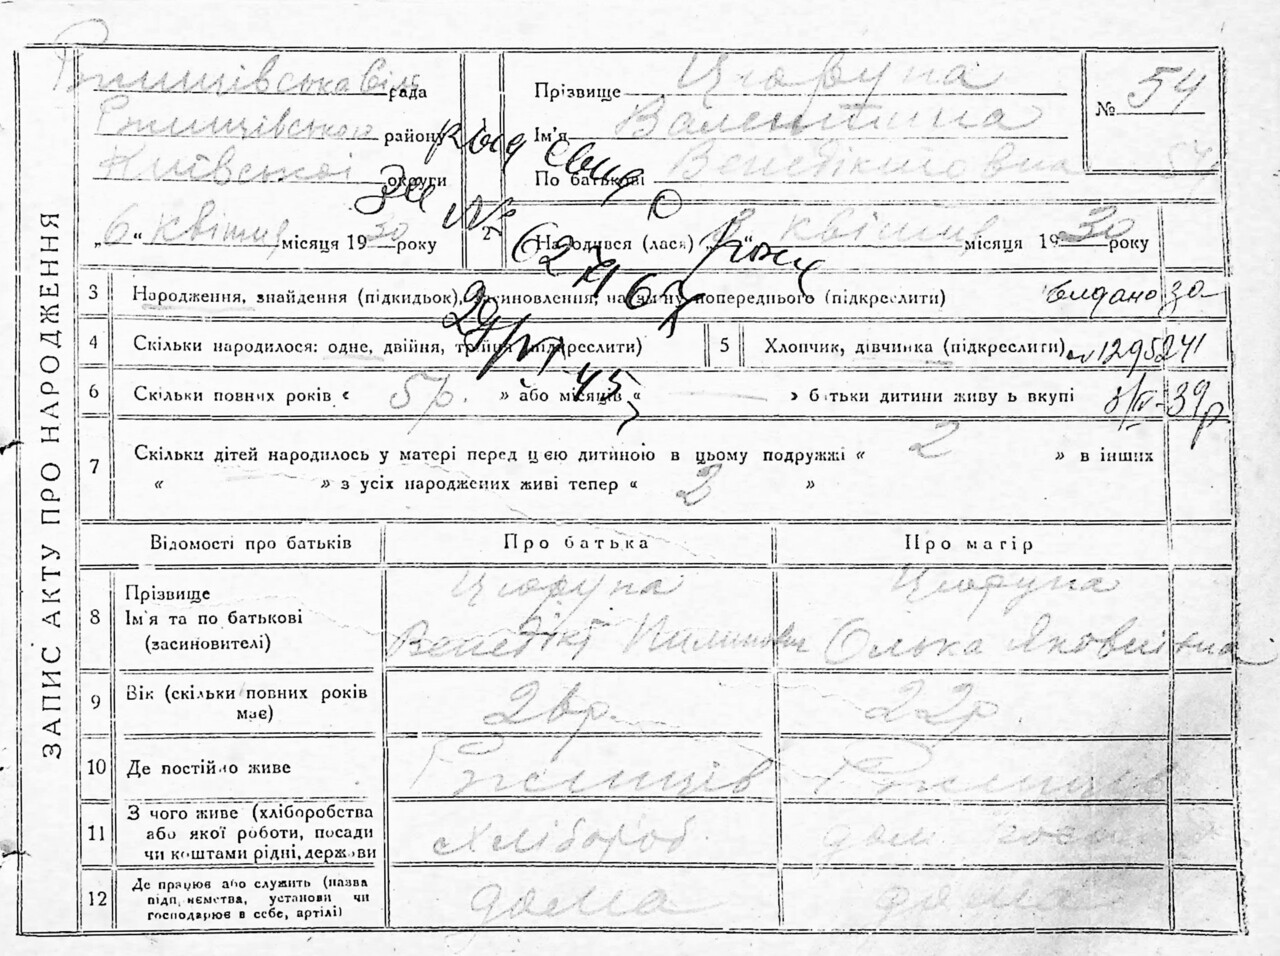 ЗАПИС АКТУ ПРО НАРОДЖЕННЯ
Ржищівська сіль рада
Ржищівського району
Київської округи
Прізвище Цюрупа
Ім'я Валентина
По батькові Венедіктовна
№ 54
54
"6" квітня місяця 1930 року
2 Народився (лася) " " квітня місяця 1930 року
3 Народження, знайдення (підкидьок), засиновлення, на зміну попереднього (підкреслити)
видано за
4 Скільки народилося: одне, двійня, трійня (підкреслити)
5 Хлопчик, дівчинка (підкреслити)
№ 1295241
6 Скільки повних років « 5р. » або місяців « — » бітьки дитини живуть вкупі
3/IV-39р
7 Скільки дітей народилось у матері перед цією дитиною в цьому подружжі « 2 » в інших
« » з усіх народжених живі тепер « 2 »
Відомості про батьків
Про батька
Про матір
8 Прізвище
Ім'я та по батькові
(засиновителі)
Цюрупа
Венедікт Пилипович
Цюрупа
Олька Яковлівна
9 Вік (скільки повних років має)
26р.
22р
10 Де постійно живе
Ржищів
Ржищів
11 З чого живе (хліборобства
або якої роботи, посади
чи коштами рідні, держави
хлібороб
дом
12 Де працює або служить (назва
підприємства, установи чи
господарює в себе, артілі)
дома
дома